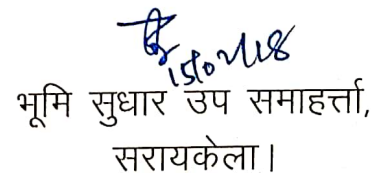 15/02/18
भूमि सुधार उप समाहर्त्ता,
सरायकेला।